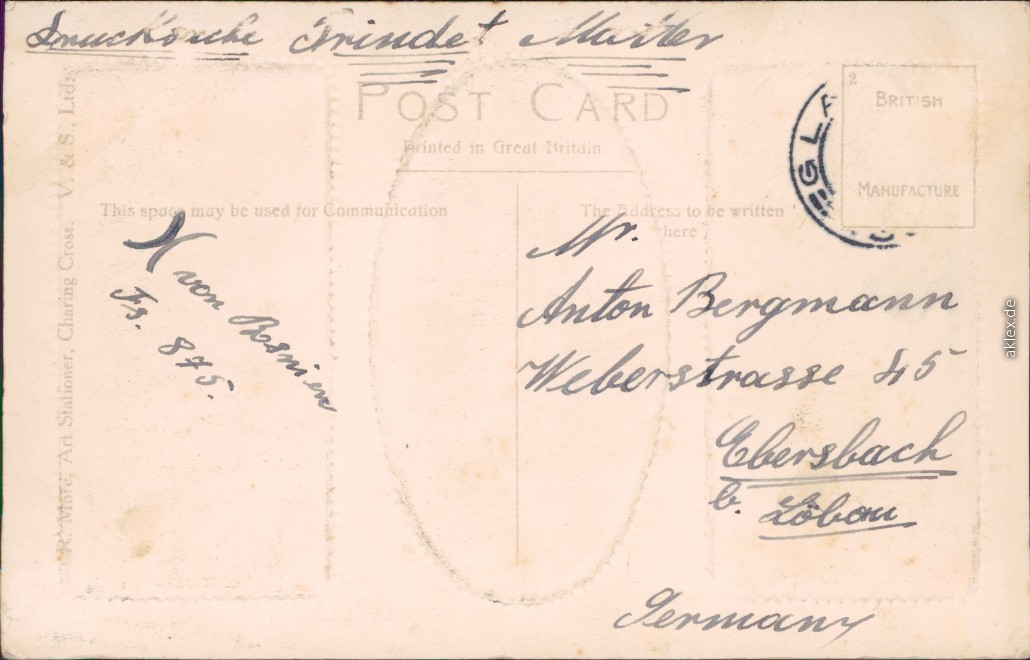 Drucksache Trindet Matter
POST CARD
Printed in Great Britain
2
BRITISH
MANUFACTURE
This space may be used for Communication
The Address to be written
here
von Bosnien
Fs. 875.
Mr.
Anton Bergmann
Weberstrasse 45
Ebersbach
b. Löbau
Germany
R. More, Art Stationer, Charing Cross. V. & S., Ltd.
aklex.de